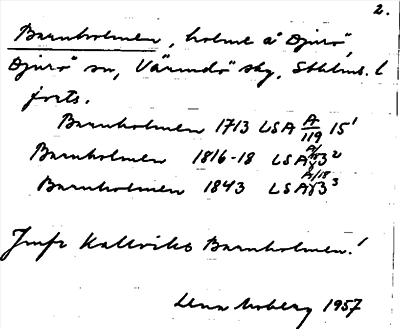 2.
Barnholmen, holme å Djurö,
Djurö sn, Värmdö skg, Sthlms. l
forts.
Barnholmen 1713 LSA A/119 15¹
Barnholmen 1816-18 LSA 3²
Barnholmen 1843 LSA A/18 3³
Jmfr Kallviks Barnholmen.!
Lena Moberg 1957